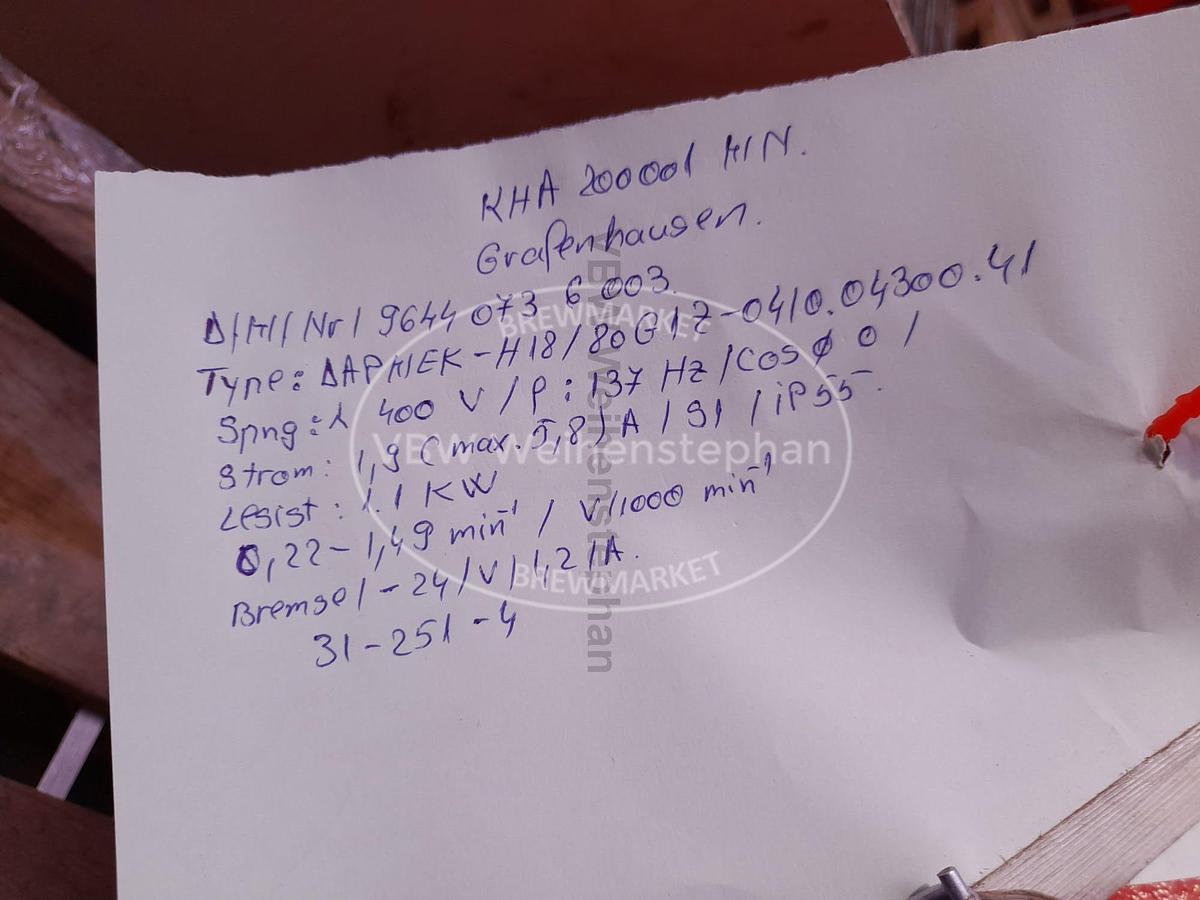 KHA 200001 HIN.
Grafenhausen.
Δ/H// Nr/ 9644 073 6 003.
Type: ΔAPHIEK-H18/80G1Z-0410.04300.41
Spng: λ 400 V / P: 137 Hz /COS φ 0 /
Strom: 1,9 (max. 5,8) A / S1 / iP55.
Lesist: 1.1 KW
0,22-1,49 min⁻¹ / V/1000 min⁻¹
Bremsel-24/V/1,2/A.
31-251-4
BREWMARKET
VBW Weihenstephan
BREWMARKET
VBW Weihenstephan